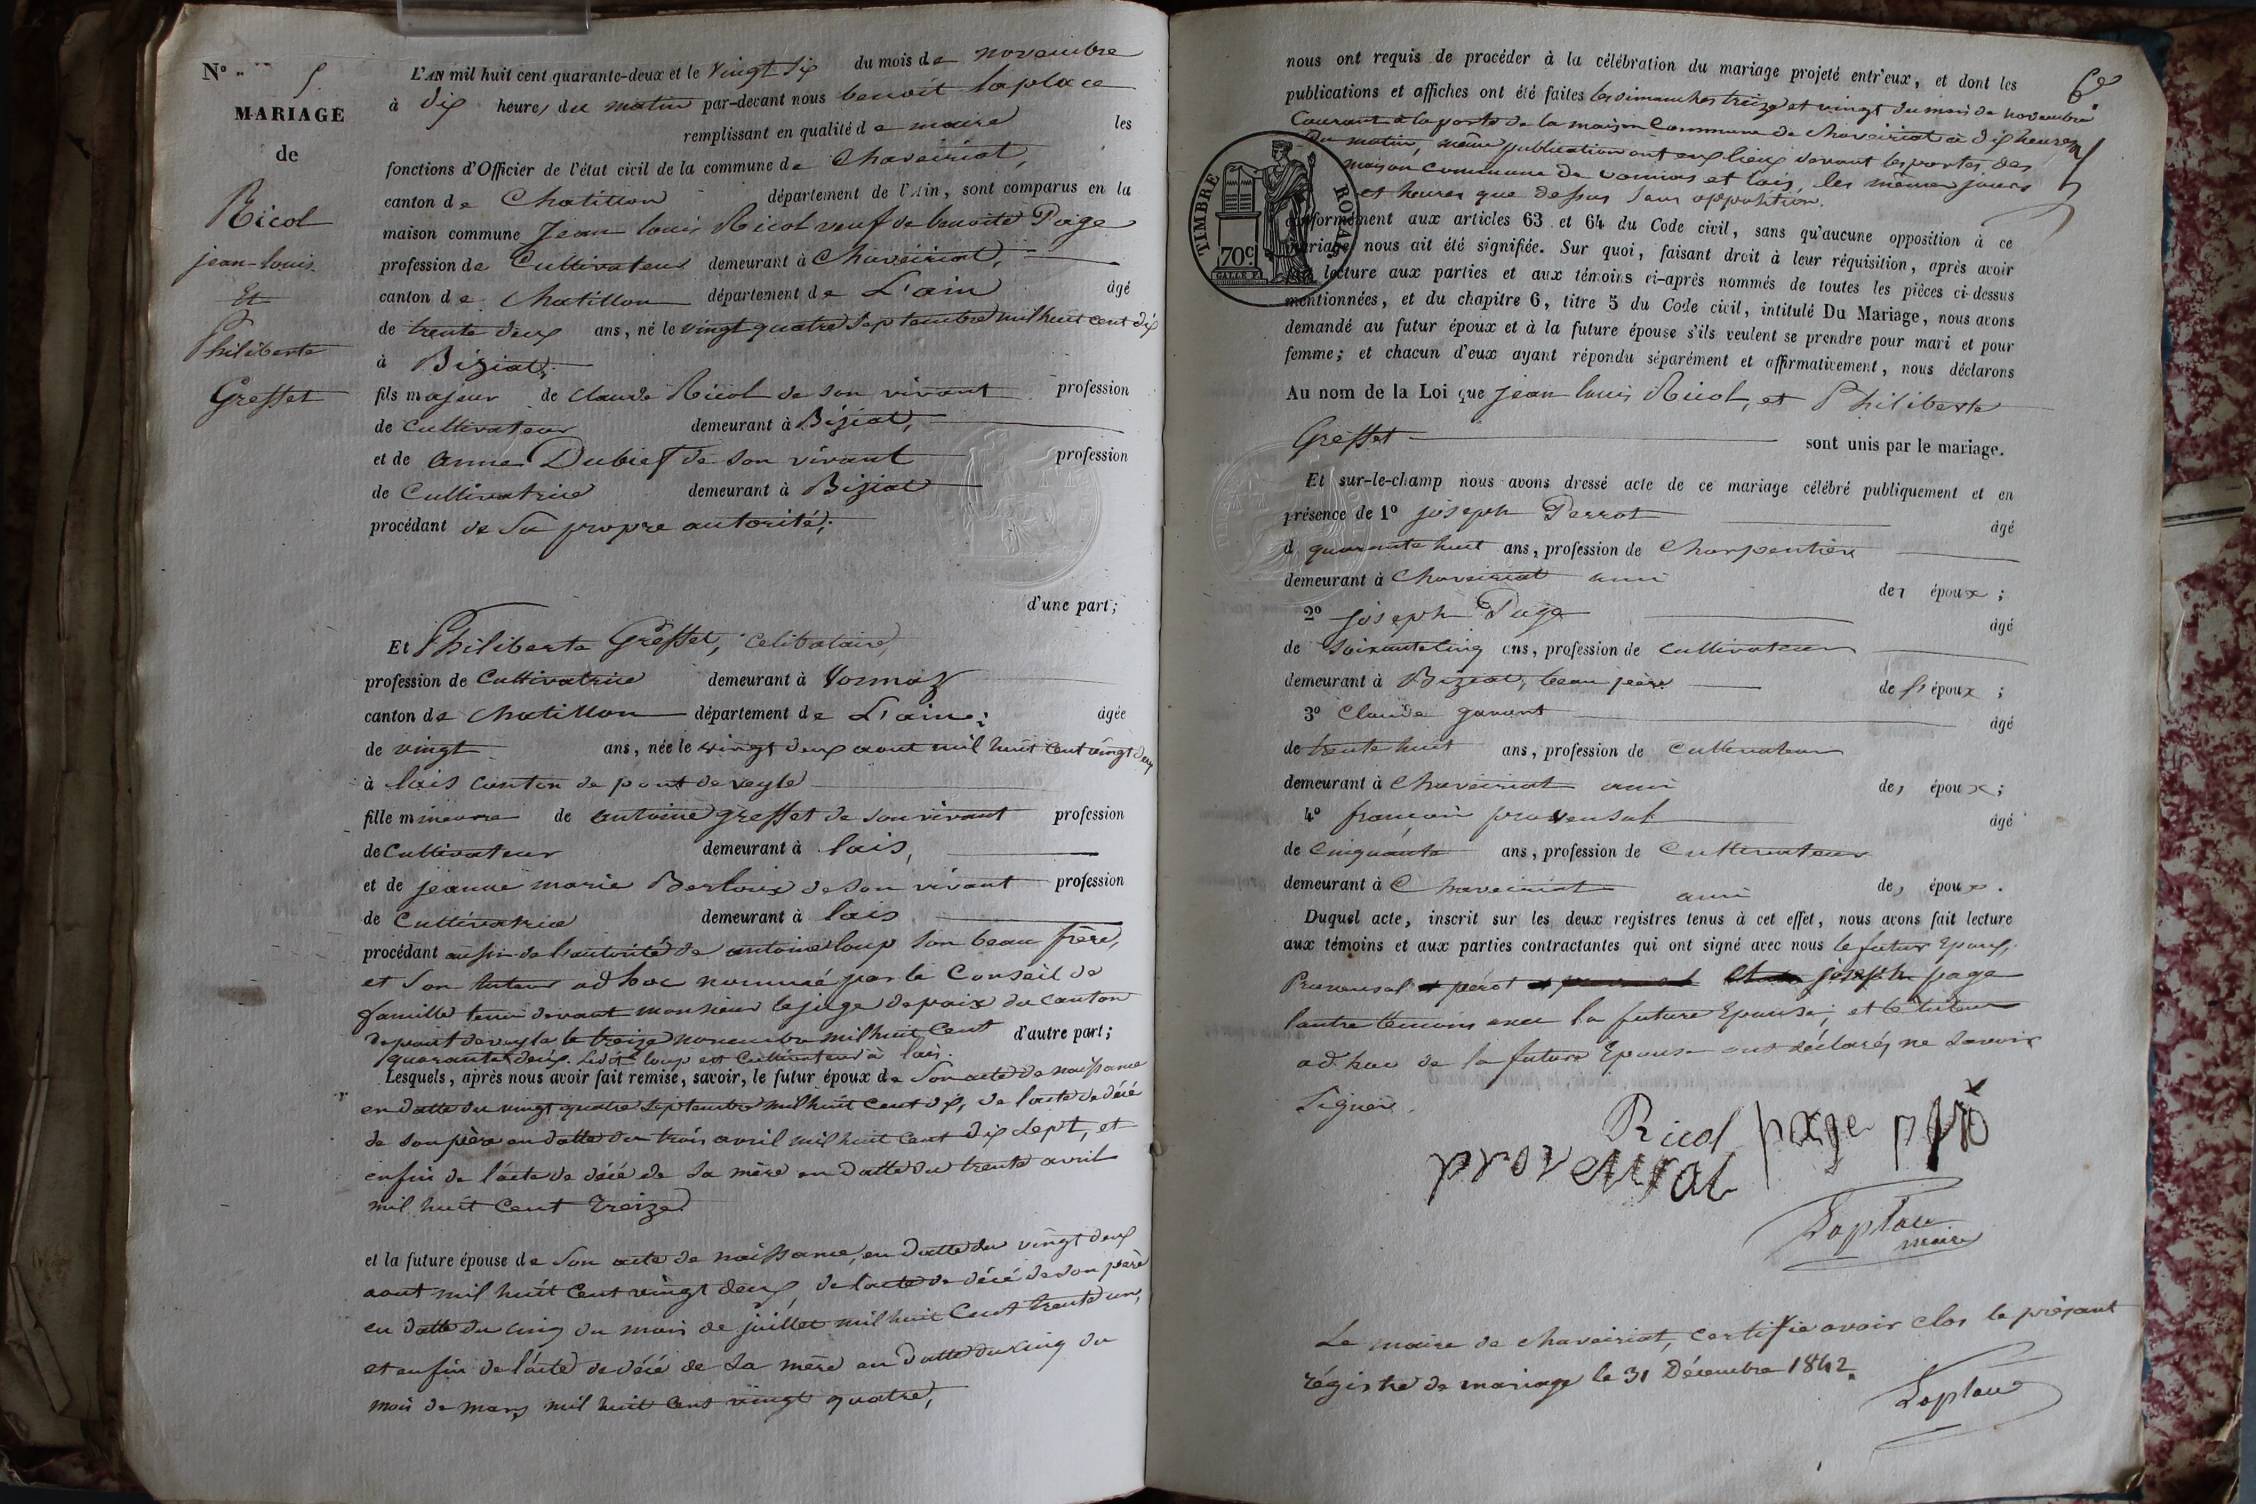 N° 5
MARIAGE
de
Ricol
jean-louis
Et
Philiberte
Greffet
L'AN mil huit cent quarante-deux et le vingt six du mois de novembre
à dix heures du matin par-devant nous benoit laplace
remplissant en qualité de maire les
fonctions d'Officier de l'état civil de la commune de Chaveiriat,
canton de Chatillon département de l'Ain, sont comparus en la
maison commune Jean louis Ricol veuf de benoite Page
profession de Cultivateur demeurant à Chaveiriat,
canton de Chatillon département de L'ain âgé
de trente deux ans, né le vingt quatre Septembre mil huit cent dix
à Biziat,
fils majeur de claude Ricol de son vivant profession
de Cultivateur demeurant à Biziat,
et de anne Dubief de son vivant profession
de Cultivatrice demeurant à Biziat
procédant de sa propre autorité;
d'une part;
Et Philiberte Greffet, celibataire,
profession de Cultivatrice demeurant à Vonnaz
canton de chatillon département de L'ain; âgée
de vingt ans, née le vingt deux aout mil huit cent vingt deux
à lais canton de pont de veyle
fille mineure de antoine greffet de son vivant profession
de Cultivateur demeurant à lais,
et de jeanne marie Berloux de son vivant profession
de Cultivatrice demeurant à lais
procédant de l'autorité de antoine loup son beau frère,
et son tuteur ad hoc nommé par le Conseil de
famille tenu devant monsieur le juge de paix du canton
de pont de veyla le treize novembre mil huit cent d'autre part;
quarante deux. Ledit loup est Cultivateur à lais.
Lesquels, après nous avoir fait remise, savoir, le futur époux de Son acte de naissance
en datte du vingt quatre Septembre mil huit cent dix, de l'acte de décé
de son père en datte du trois avril mil huit cent dix sept, et
enfin de l'acte de décé de sa mère en datte du trente avril
mil huit cent treize
et la future épouse de Son acte de naissance, en datte du vingt deux
aout mil huit cent vingt deux, de l'acte de décé de son père
en datte du cinq du mois de juillet mil huit Cent trente un,
et enfin de l'acte de décé de sa mère en datte du cinq du
mois de mars mil huit cent vingt quatre,
nous ont requis de procéder à la célébration du mariage projeté entr'eux, et dont les
publications et affiches ont été faites les dimanches treize et vingt du mois de novembre
Courant à la porte de la maison Commune de Chaveiriat à dix heures
du matin, même publication ont eux lieux devant les portes des
maison Commune de vonnas et lais, les mêmes jours
et heures que dessus sans opposition.
TIMBRE ROYAL
70c
conformément aux articles 63 et 64 du Code civil, sans qu'aucune opposition à ce
mariage nous ait été signifiée. Sur quoi, faisant droit à leur réquisition, après avoir
lecture aux parties et aux témoins ci-après nommés de toutes les pièces ci-dessus
mentionnées, et du chapitre 6, titre 5 du Code civil, intitulé Du Mariage, nous avons
demandé au futur époux et à la future épouse s'ils veulent se prendre pour mari et pour
femme; et chacun d'eux ayant répondu séparément et affirmativement, nous déclarons
Au nom de la Loi que jean louis Ricol, et Philiberte
Greffet sont unis par le mariage.
Et sur-le-champ nous avons dressé acte de ce mariage célébré publiquement et en
présence de 1° joseph Perrot âgé
d quarante huit ans, profession de Charpentier
demeurant à Chaveiriat ami des époux;
2° joseph Page âgé
de Soixante cinq ans, profession de Cultivateur
demeurant à Biziat, beau père de l'époux;
3° Claude gavant âgé
de trente huit ans, profession de Cultivateur
demeurant à Chaveiriat ami des époux;
4° françois provensal âgé
de Cinquante ans, profession de Cultivateur
demeurant à Chaveiriat ami des époux.
Duquel acte, inscrit sur les deux registres tenus à cet effet, nous avons fait lecture
aux témoins et aux parties contractantes qui ont signé avec nous le futur Epoux,
Provensal pérot joseph page
l'autre témoins avec la future Epouse, et le tuteur
ad hoc de la future Epouse ont déclarés ne Savoir
Signer.
Ricol page
provensal
Laplace
maire
Le maire de chaveiriat, certifie avoir clos le présant
régistre de mariage le 31 Décembre 1842.
Laplace